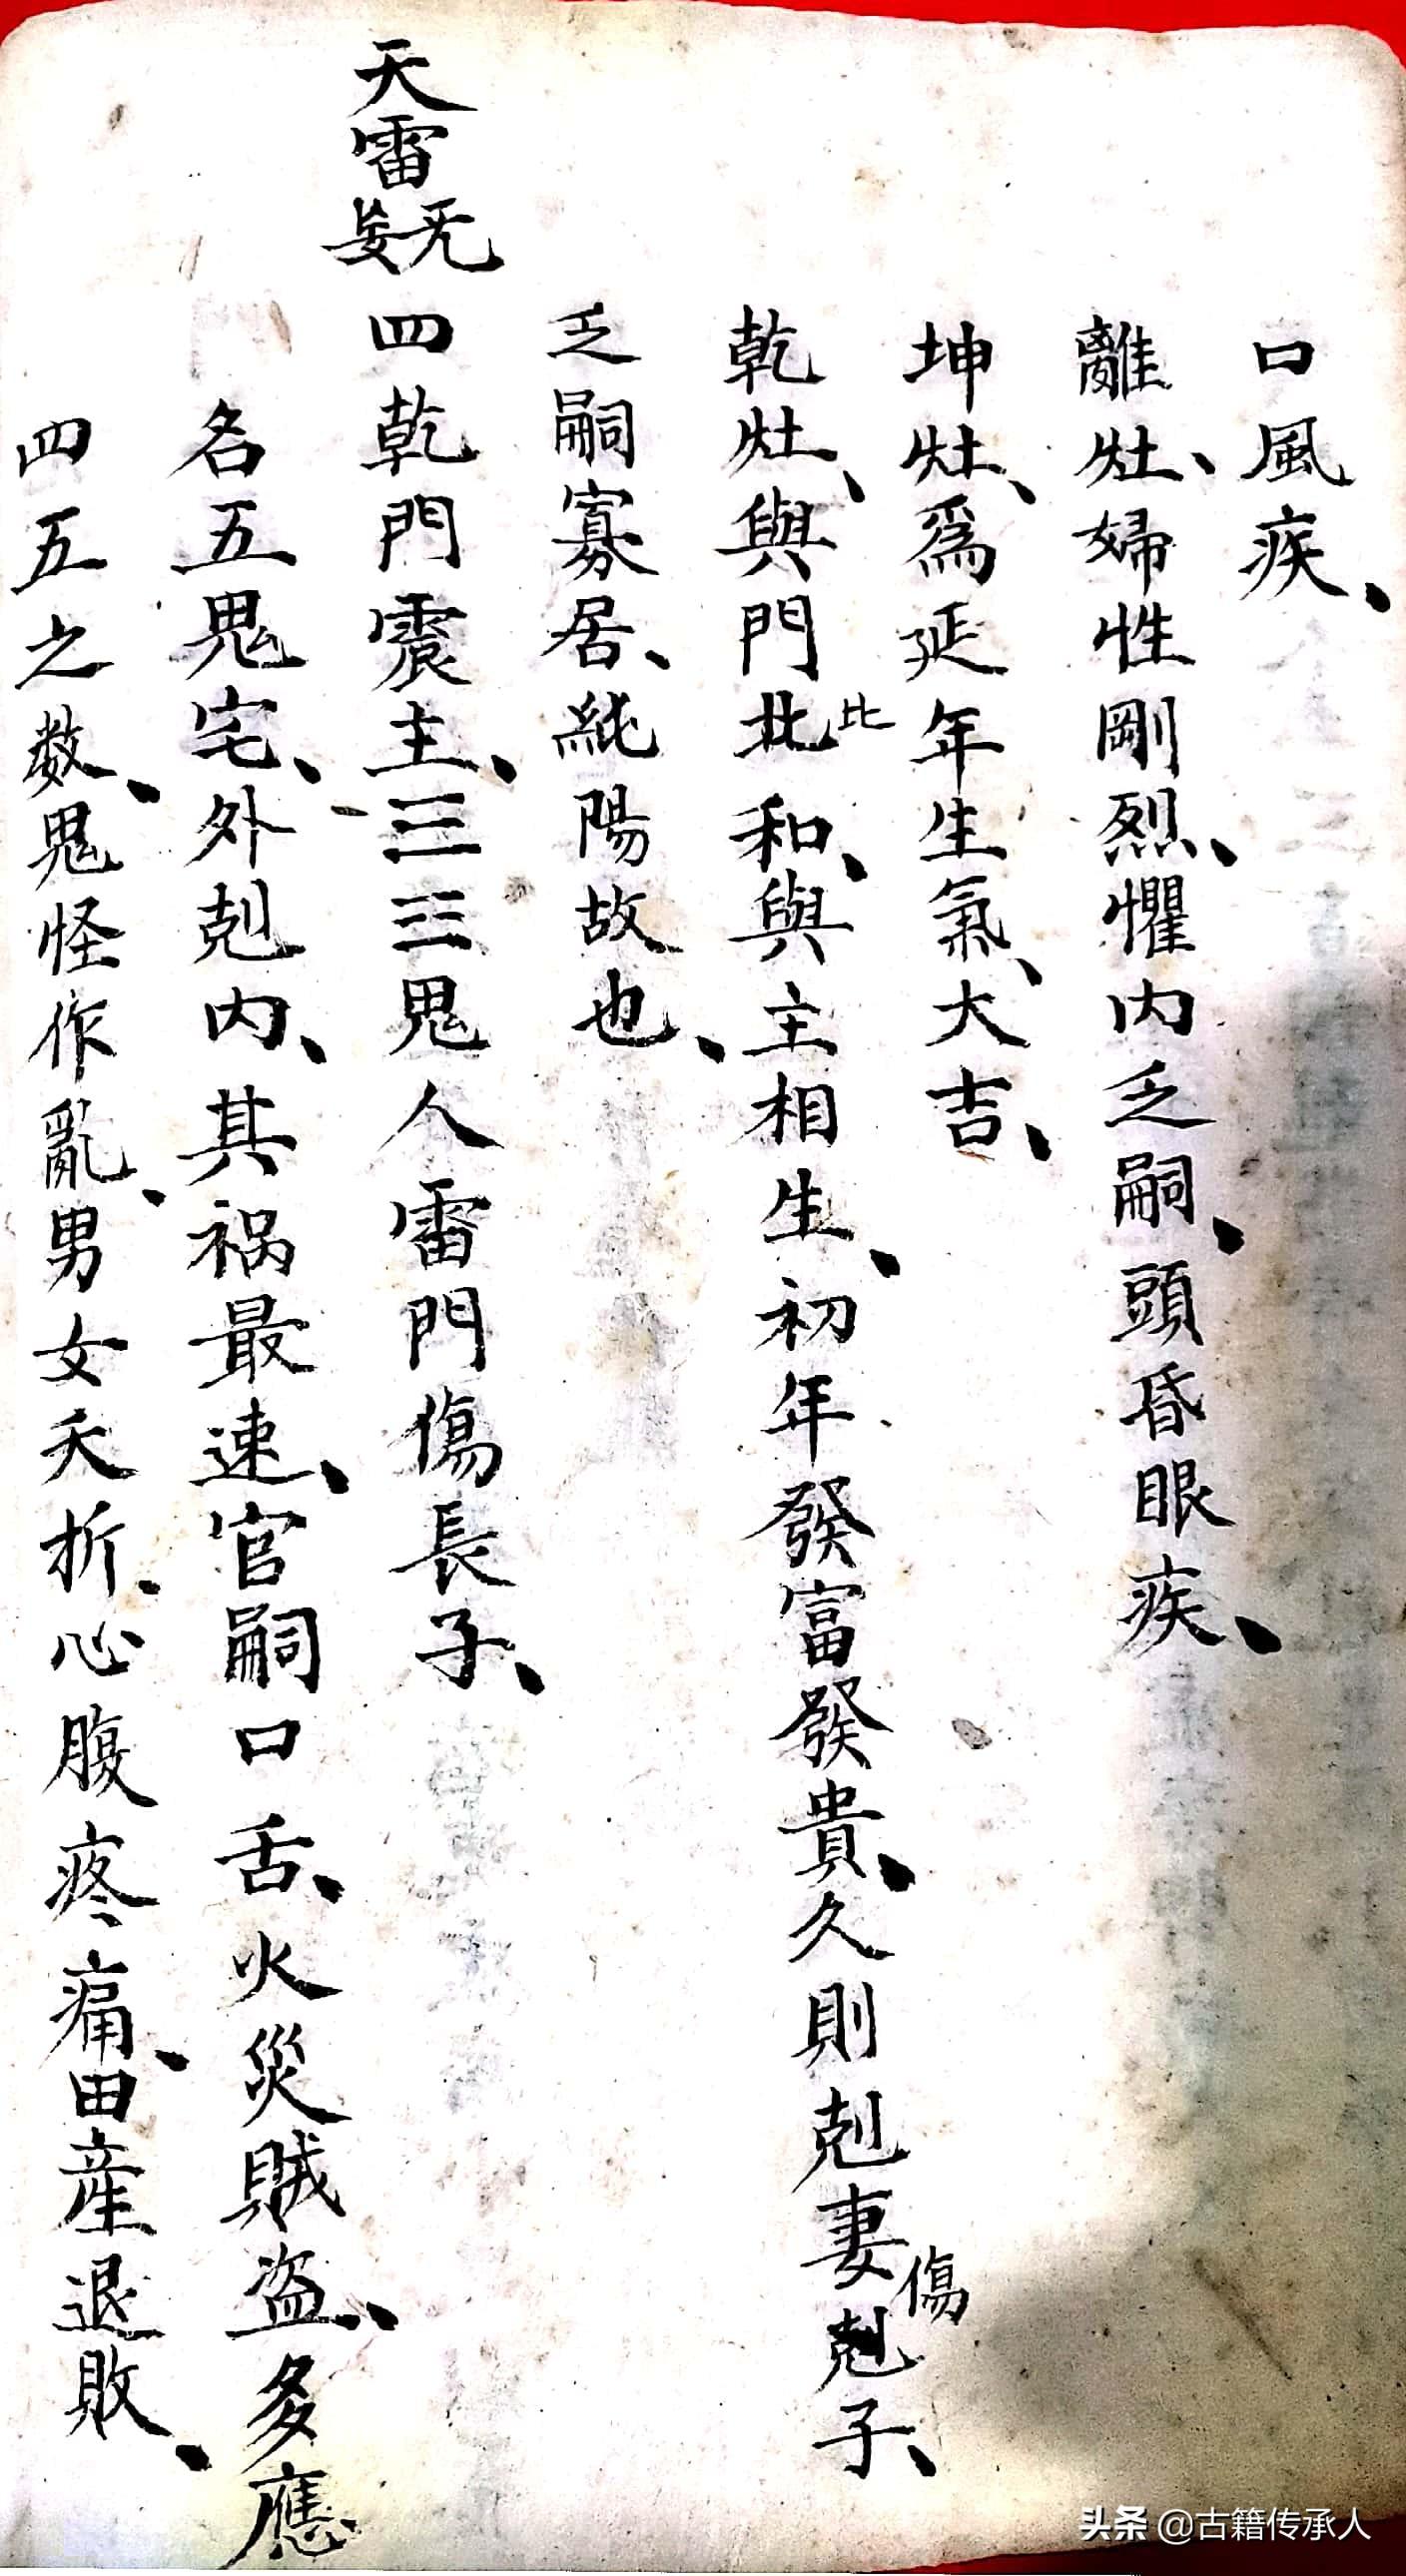 口風疾、
離灶、婦性剛烈、懼内乏嗣、頭昏眼疾、
坤灶、爲延年生氣、大吉、
乾灶、與門北比和、與主相生、初年發富發貴、久則剋妻剋傷子、
乏嗣寡居、純陽故也、
天雷无妄 四乾門震主、☰☳鬼人雷門傷長子、
名五鬼宅、外剋内、其祸最速、官嗣口舌、火災賊盗、多應
四五之数、鬼怪作亂、男女夭折、心腹疼痛、田産退敗、
头条 @古籍传承人